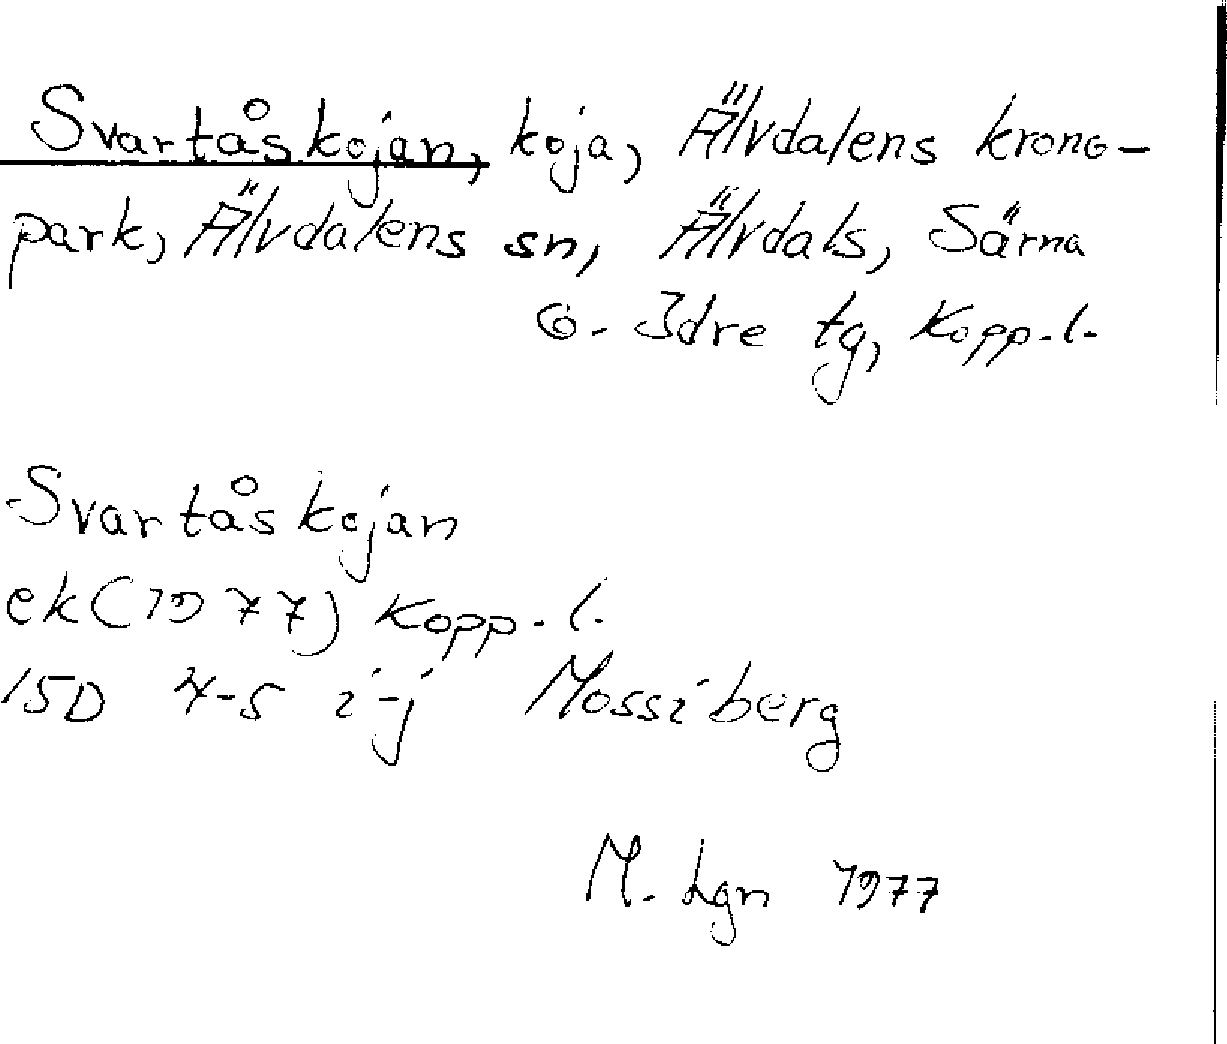 Svartåskojan, koja, Älvdalens krono-
park, Älvdalens sn, Älvdals, Särna
o. Idre tg, Kopp.l.
Svartåskojan
ek(1977) Kopp.l.
15D 4-5 i-j Mossiberg
M. Lgn 1977